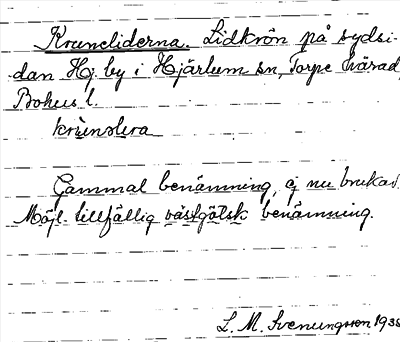 Kruneliderna. Lidkrön på sydsi-
dan Hj. by i Hjärtum sn, Torpe härad,
Bohus l.
Gammal benämning, ej nu brukad.
Möjl. tillfällig västgötsk benämning.
L. M. Svenungsson 1938